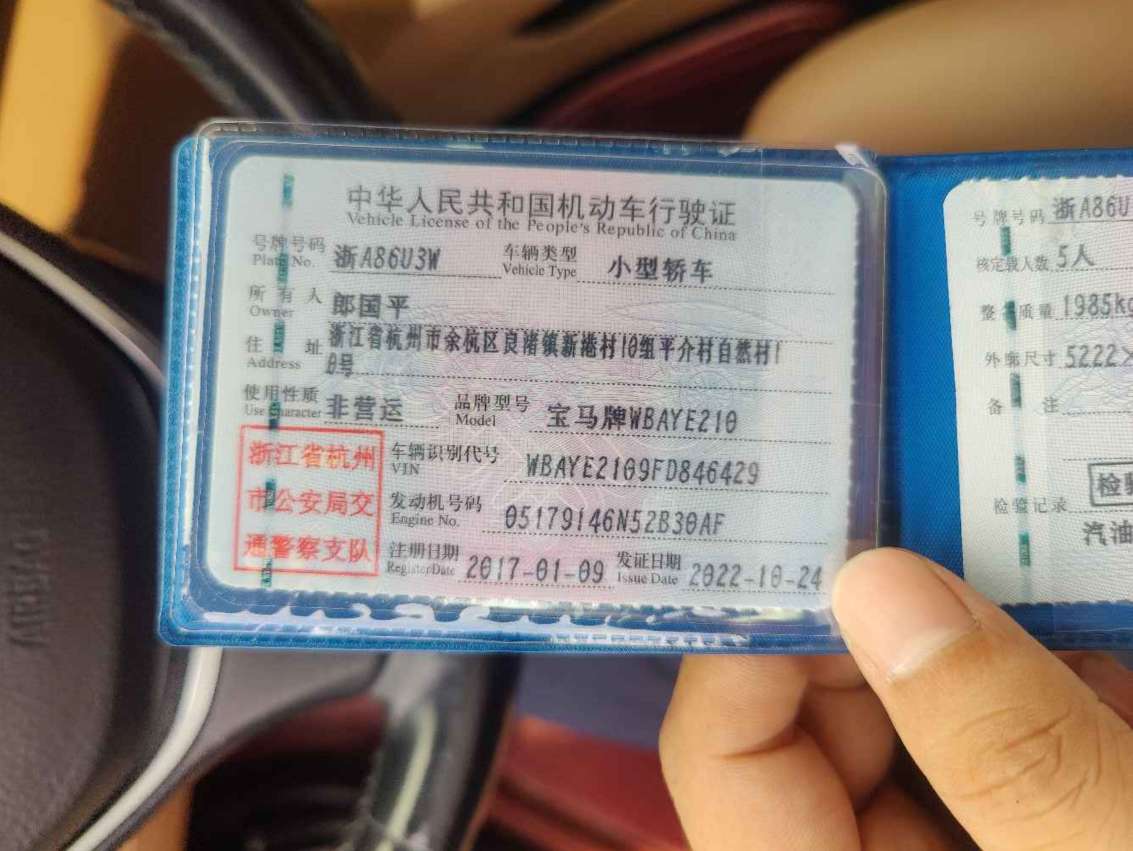 中华人民共和国机动车行驶证
Vehicle License of the People's Republic of China
号牌号码 浙A86U3W 车辆类型 小型轿车
Plate No. Vehicle Type
所有人 郎国平
Owner
住址 浙江省杭州市余杭区良渚镇新港村10组平介村自然村1
Address 0号
使用性质 非营运 品牌型号 宝马牌WBAYE210
Use Character Model
浙江省杭州
市公安局交
通警察支队
车辆识别代号 WBAYE2109FD846429
VIN
发动机号码 05179146N52B30AF
Engine No.
注册日期 2017-01-09 发证日期 2022-10-24
Register Date Issue Date
号牌号码 浙A86U
核定载人数 5人
整备质量 1985kg
外廓尺寸 5222×
备注
检验记录
汽油